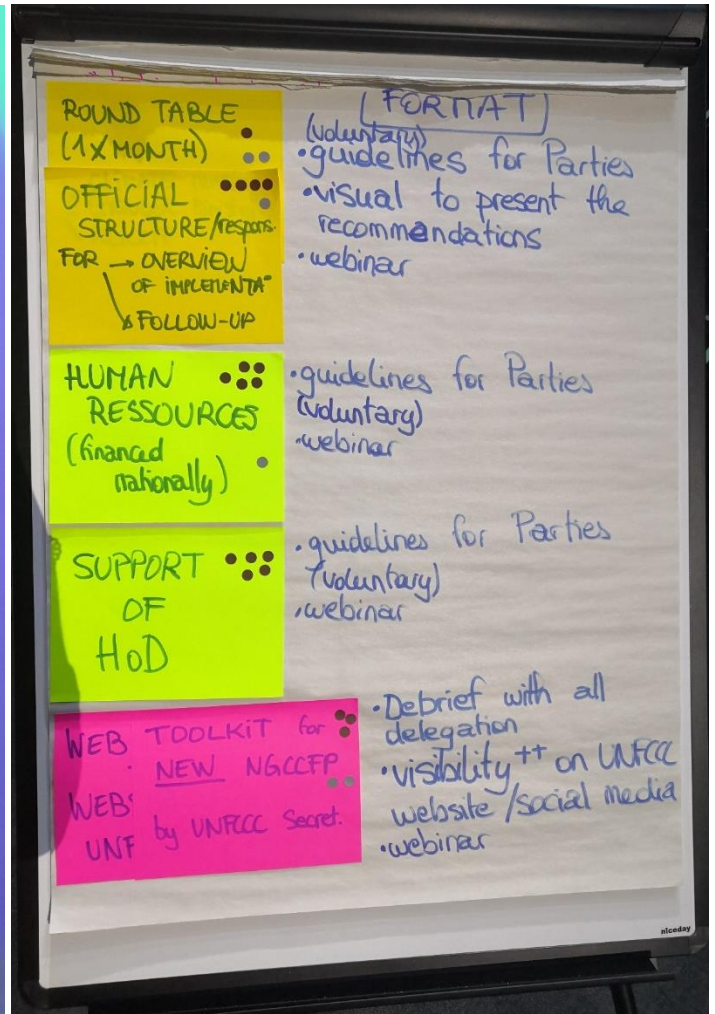 ROUND TABLE
(1X MONTH)
OFFICIAL
STRUCTURE/respons.
FOR → OVERVIEW
OF IMPLEMENTA°
↘ FOLLOW-UP
HUMAN
RESSOURCES
(financed
nationally)
SUPPORT
OF
HoD
WEB
WEBS
UNF
TOOLKIT for
NEW NGCCFP
by UNFCCC Secret.
FORMAT
(voluntary)
•guidelines for Parties
•visual to present the
recommendations
•webinar
•guidelines for Parties
(voluntary)
•webinar
•guidelines for Parties
(voluntary)
•webinar
•Debrief with all
delegation
•visibility++ on UNFCCC
website/social media
•webinar
niceday